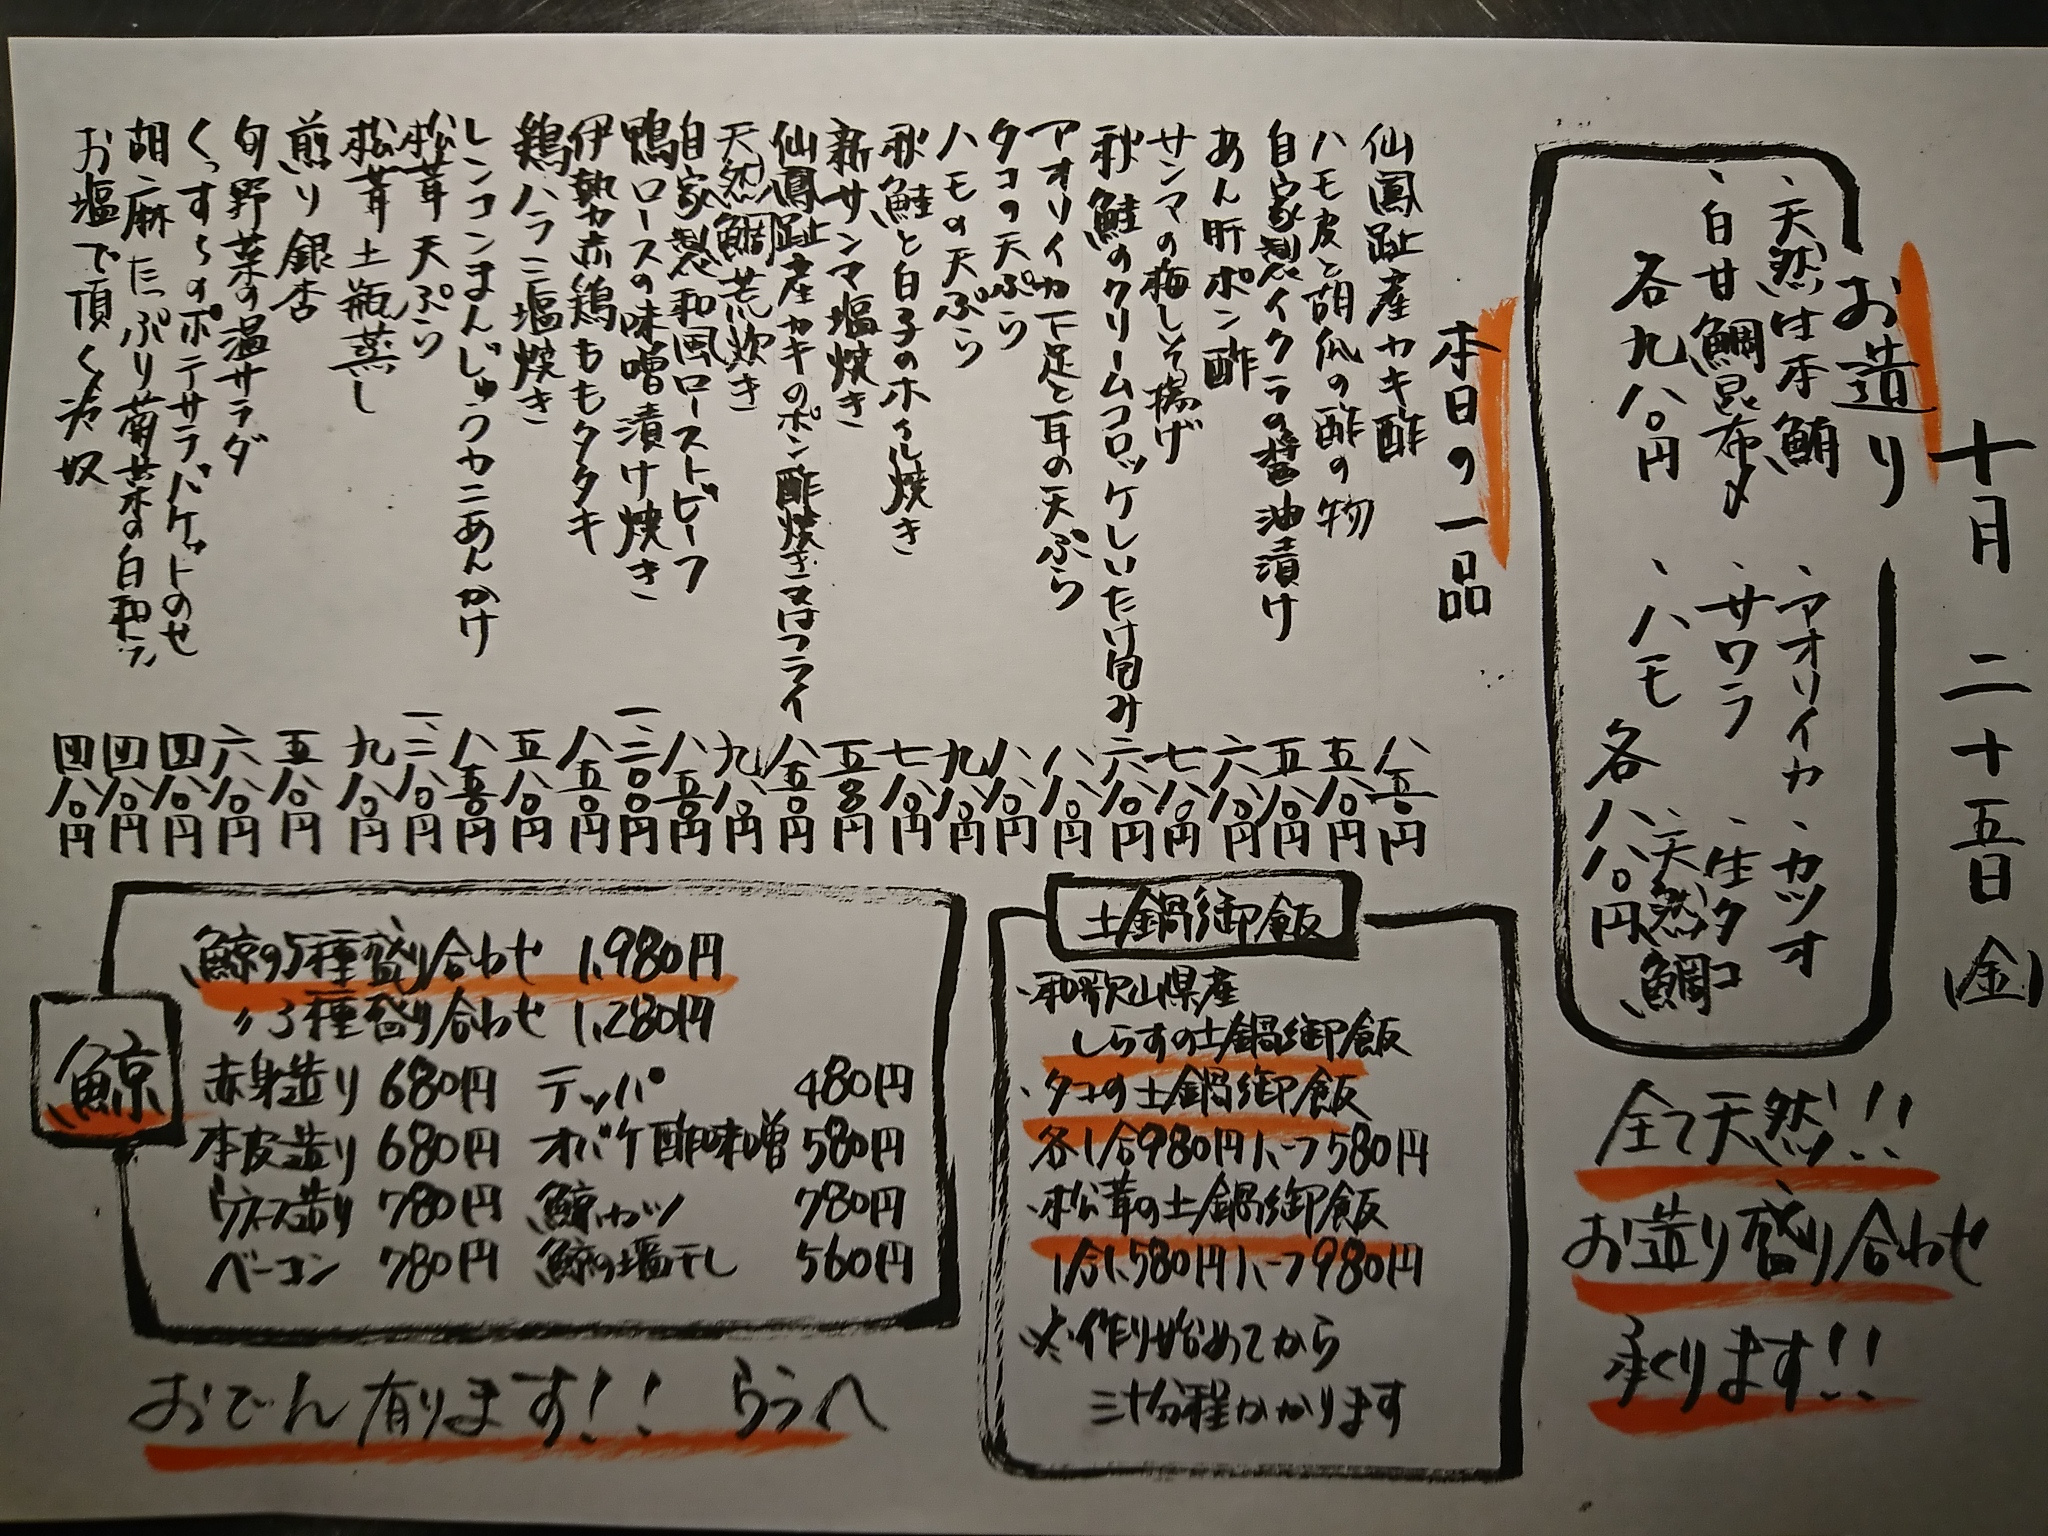 十月二十五日(金)
お造り
、天然生本鮪
、白甘鯛昆布〆
各九八〇円
、アオリイカ
、サワラ
、ハモ
、カツオ
、生タコ
、天然鯛
各八八〇円
全て天然!!
お造り盛り合わせ
承ります!!
本日の一品
仙鳳趾産カキ酢 八五〇円
ハモ皮と胡瓜の酢の物 五八〇円
自家製イクラの醤油漬け 五八〇円
あん肝ポン酢 六八〇円
サンマの梅しそ揚げ 七八〇円
秋鮭のクリームコロッケしいたけ包み 六八〇円
アオリイカ下足と耳の天ぷら 八八〇円
タコの天ぷら 八八〇円
ハモの天ぷら 九八〇円
秋鮭と白子のホイル焼き 七八〇円
新サンマ塩焼き 五八〇円
仙鳳趾産カキのポン酢焼き又はフライ 八五〇円
天然鯛荒炊き 九八〇円
自家製和風ローストビーフ 八五〇円
鴨ロースの味噌漬け焼き 一、二〇〇円
伊勢赤鶏ももタタキ 八五〇円
鶏ハラミ塩焼き 五八〇円
レンコンまんじゅうカニあんかけ 八五〇円
松茸天ぷら 一、二八〇円
松茸土瓶蒸し 九八〇円
煎り銀杏 五八〇円
旬野菜の温サラダ 六八〇円
くっすぅのポテサラバケットのせ 四八〇円
胡麻たっぷり菊菜の白和え 四八〇円
お塩で頂く冷奴 四八〇円
土鍋御飯
、和歌山県産
しらすの土鍋御飯
、タコの土鍋御飯
各1合980円ハーフ580円
、松茸の土鍋御飯
1合1,580円ハーフ980円
※作り始めてから
三十分程かかります
鯨
鯨の5種盛り合わせ 1,980円
〃3種盛り合わせ 1,280円
赤身造り 680円 テッパ 480円
本皮造り 680円 オバケ酢味噌 580円
ウネス造り 780円 鯨カツ 780円
ベーコン 780円 鯨の塩干し 560円
おでん有ります!! うらへ